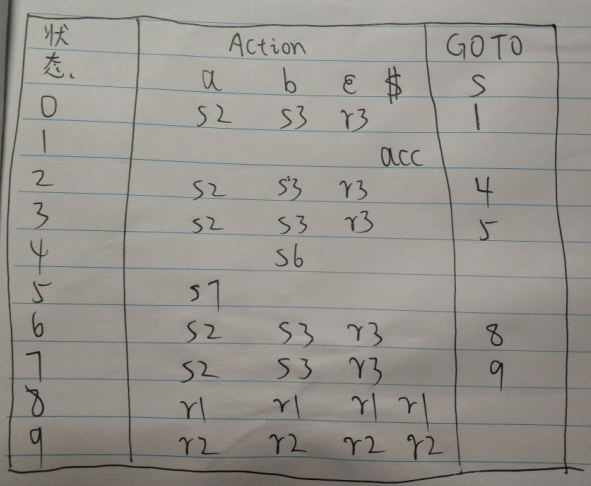 状 Action GOTO
态、 a b ε $ S
0 S2 S3 r3 1
1 acc
2 S2 S3 r3 4
3 S2 S3 r3 5
4 S6
5 S7
6 S2 S3 r3 8
7 S2 S3 r3 9
8 r1 r1 r1 r1
9 r2 r2 r2 r2